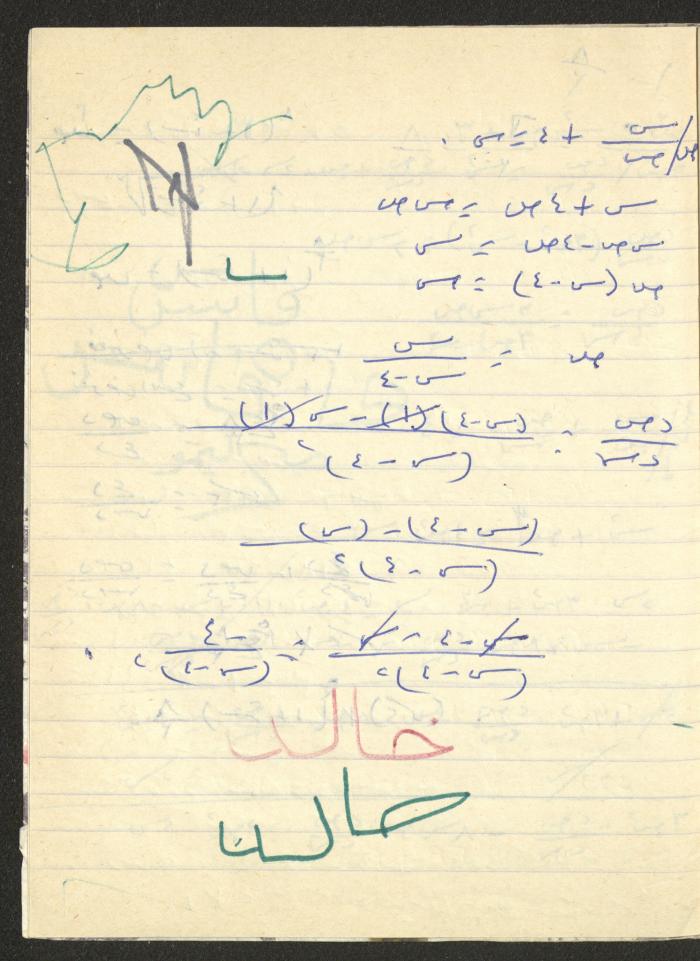 ص/ س/ص + ٤ = س
س + ٤ص = س ص
س ص - ٤ص = س
ص (س - ٤) = س
ص = س/(س - ٤)
د ص/د س = ((س - ٤)(١) - س(١))/(س - ٤)٢
((س - ٤) - (س))/(س - ٤)٢
(س - ٤ - س)/(س - ٤)٢ = -٤/(س - ٤)٢
خالد